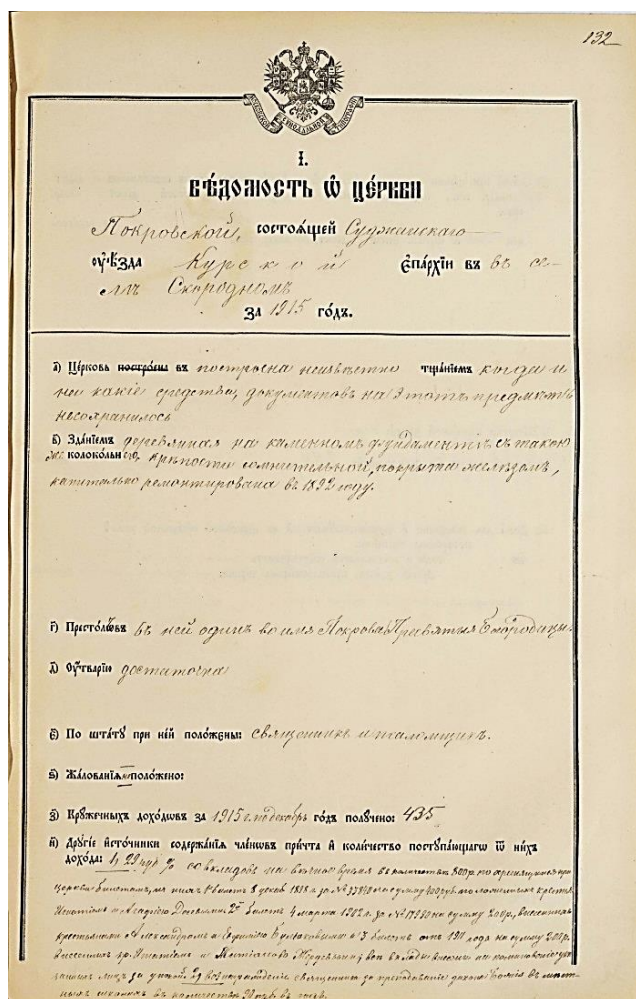 132
МОСКОВСКОЙ СѴНОДАЛЬНОЙ ТИПОГРАФІИ
I.
ВѢДОМОСТЬ Ѡ ЦЕРКВИ
Покровской, состоящей Суджанскаго
оуѣзда Курской Епархіи въ въ се-
лѣ Скородномъ
за 1915 годъ.
а) Церковь построена въ построена неизвѣстно тщаніемъ когда и
на какіе средства, документовъ на этотъ предмѣтъ
несохранилось
в) Зданіемъ деревянная на каменномъ фундаментѣ, съ такою
же колокольнею, крѣпости сомнительной, покрыта желѣзомъ,
капитально ремонтирована въ 1892 году.
г) Престоловъ въ ней одинъ во имя Покрова Пресвятыя Богородицы.
д) Оутварію достаточна
є) По штату при ней положены: священникъ и псаломщикъ.
ѕ) Жалованія не положено:
з) Кружечныхъ доходовъ за 1915 г. по декабрь годъ получено: 435
и) Другіе источники содержанія членовъ причта и количество поступающагω ѿ нихъ
дохода: 1) 29 руб % со вкладовъ на вѣчное время въ количествѣ 800 р. по хранящимся при
церкви билетамъ, изъ нихъ 1й билетъ 8 1898 г. за № на сумму 400 руб.
2й билетъ 4 марта 1902 г. за № на сумму 200 р.,
крестьянами Александромъ и 3 билетъ отъ 191 года на сумму 200 р.
лицъ 2) священника за преподаваніе закона Божія въ мѣст-
ныхъ школахъ въ количествѣ руб. въ годъ.